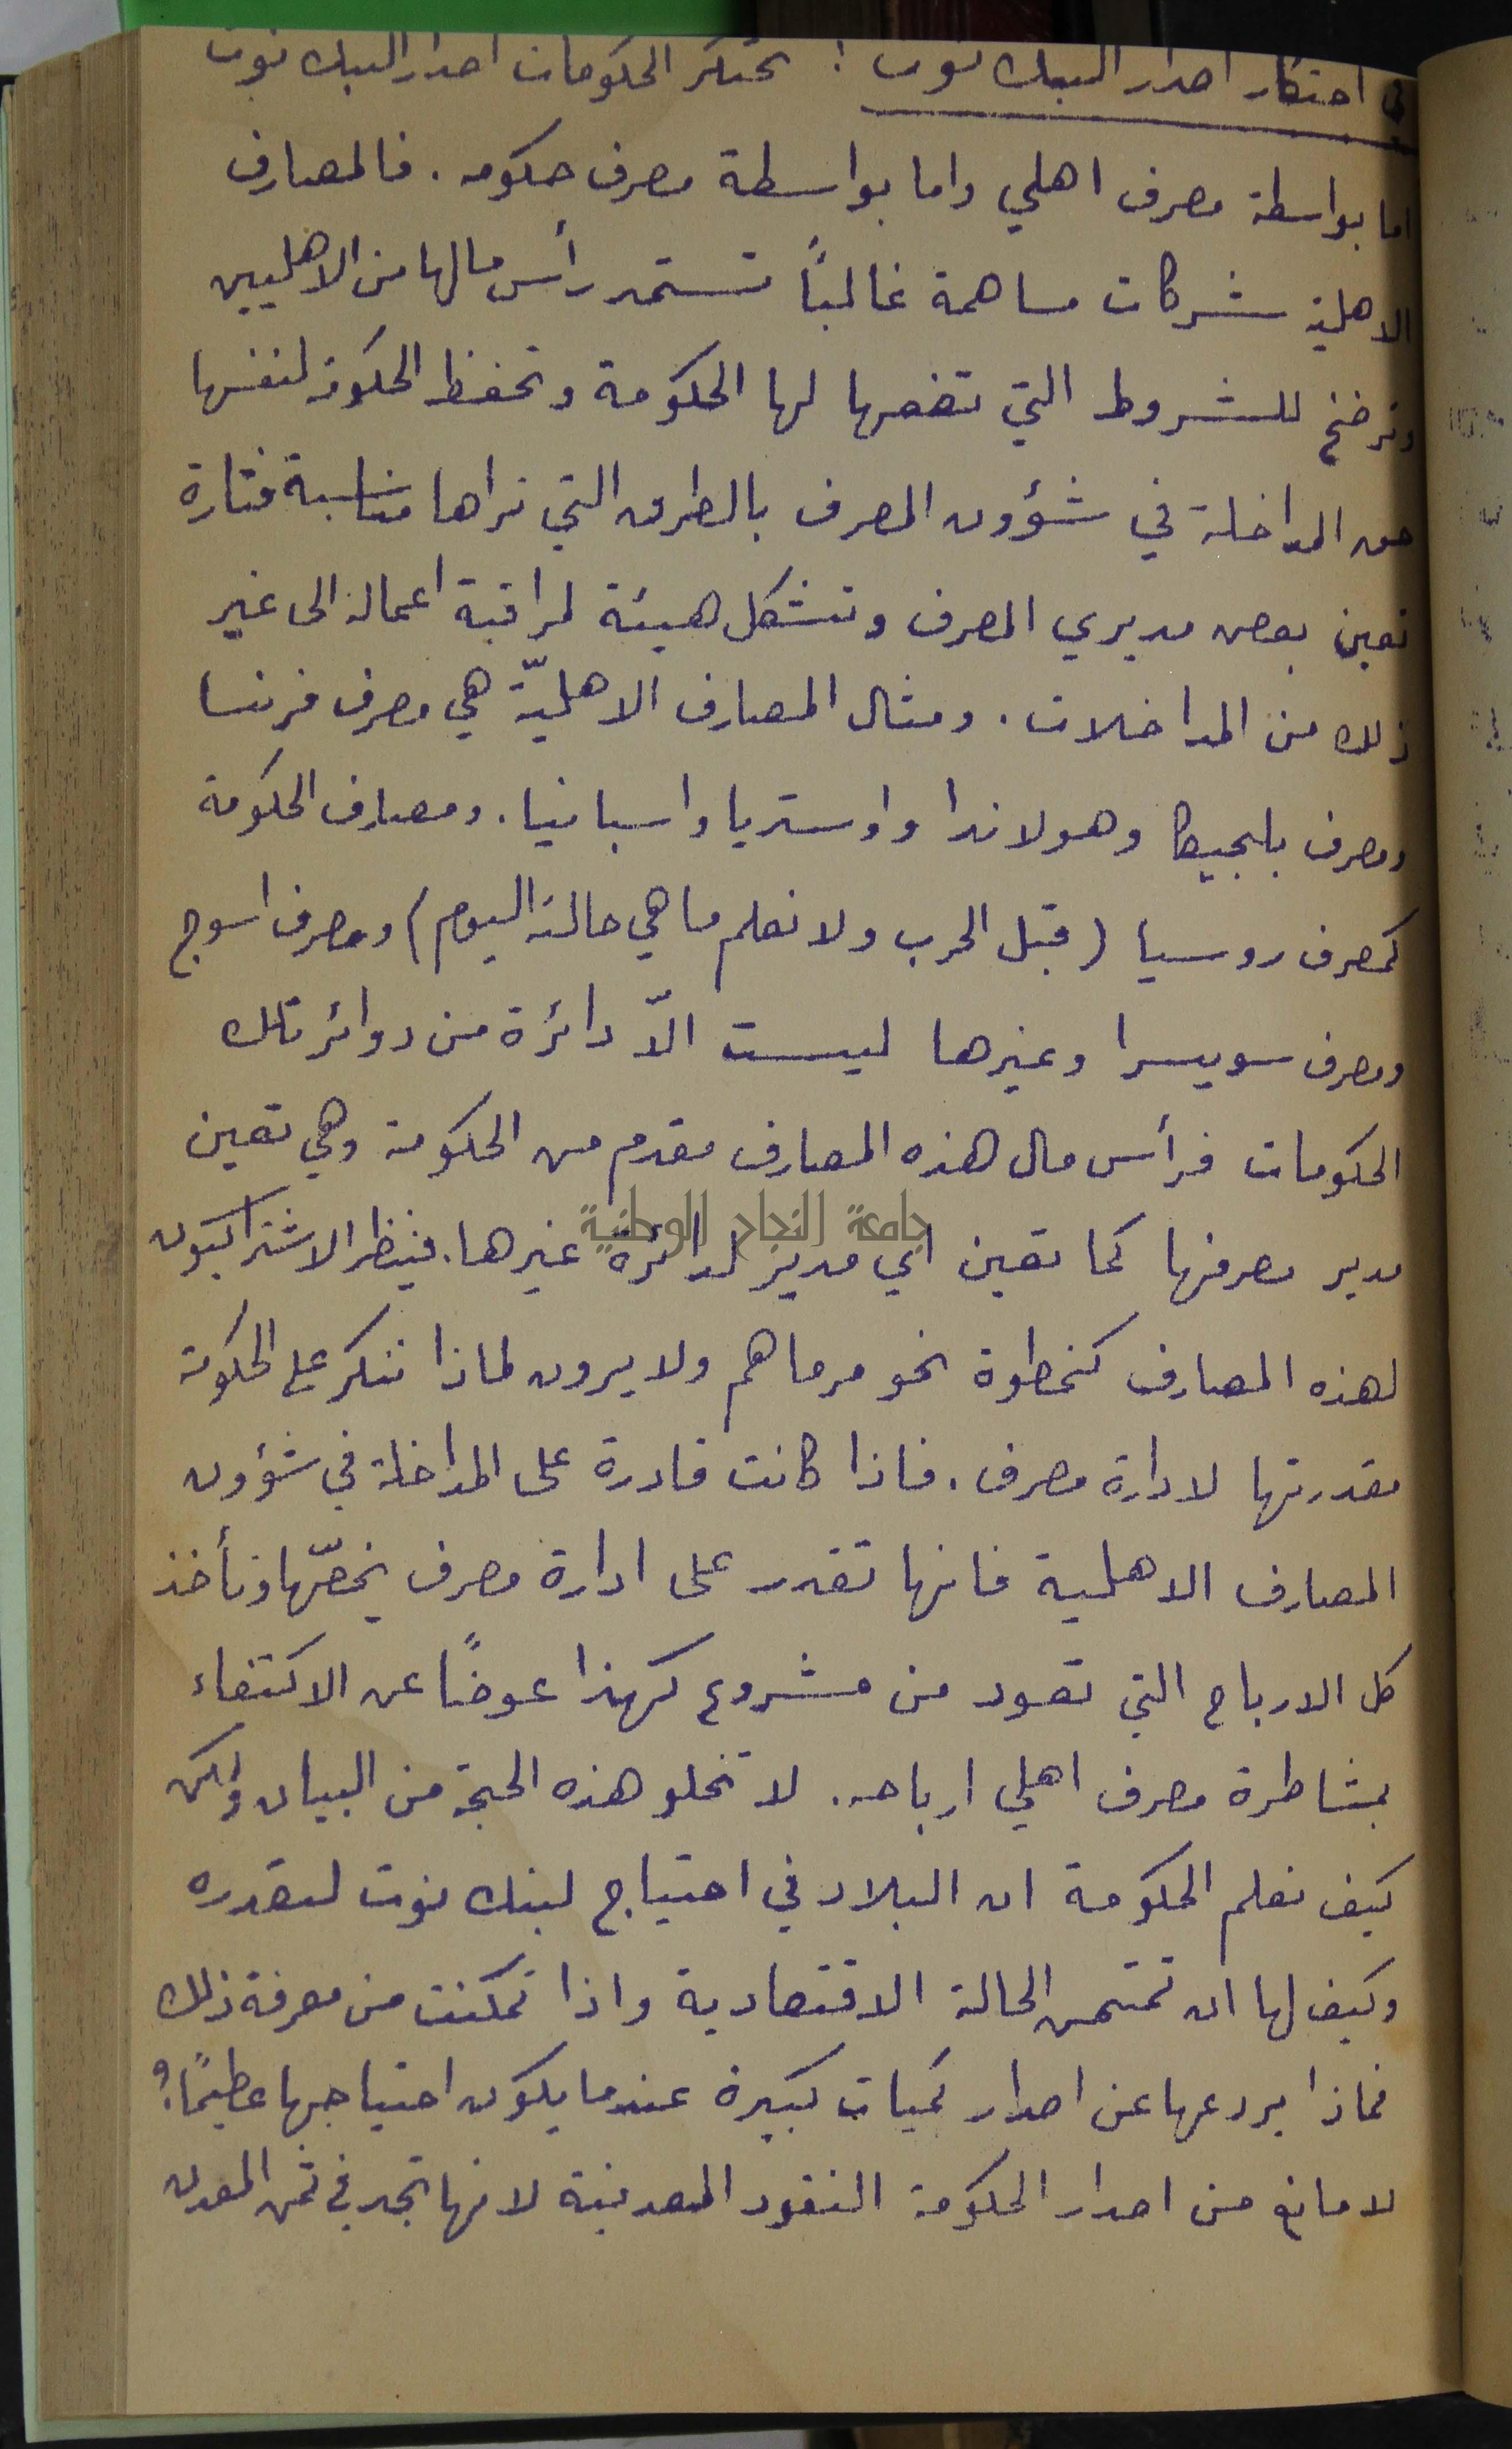 في احتكار اصدار البنك نوت : تحتكر الحكومات اصدار البنك نوت
اما بواسطة مصرف اهلي واما بواسطة مصرف حكومه . فالمصارف
الاهلية شركات مساهمة غالباً تستمد رأس مالها من الاهليين
وترضخ للشروط التي تضعها لها الحكومة وتحفظ الحكومة لنفسها
حق المداخلة في شؤون المصرف بالطرق التي تراها مناسبة فتارة
تعين بعض مديري المصرف وتشكل هيئة لمراقبة اعماله الى غير
ذلك من المداخلات . ومثال المصارف الاهليّة هي مصرف فرنسا
ومصرف بلجيكا وهولاندا واوستريا واسبانيا . ومصارف الحكومة
كمصرف روسيا ( قبل الحرب ولا نعلم ما هي حالته اليوم ) ومصرف اسوج
ومصرف سويسرا وغيرها ليست الاّ دائرة من دوائر تلك
الحكومات فرأس مال هذه المصارف مقدم من الحكومة وهي تعين
مدير مصرفها كما تعين اي مدير لدائرة غيرها . فينظر الاشتراكيون
جامعة النجاح الوطنية
لهذه المصارف كخطوة نحو مرماهم ولا يرون لماذا ننكر على الحكومة
مقدرتها لادارة مصرف . فاذا كانت قادرة على المداخلة في شؤون
المصارف الاهلية فانها تقدر على ادارة مصرف يخصّها وتأخذ
كل الارباح التي تعود من مشروع كهذا عوضاً عن الاكتفاء
بمشاطرة مصرف اهلي ارباحه . لا تخلو هذه الحجة من البيان ولكن
كيف تعلم الحكومة ان البلاد في احتياج لبنك نوت لتصدره
وكيف لها ان الحالة الاقتصادية واذا تمكنت من معرفة ذلك
فماذا يردعها عن اصدار كميات كبيرة عندما يكون احتياجها عظيماً ؟
لا مانع من اصدار الحكومة النقود المعدنية لانها تجد في ثمن المعدن